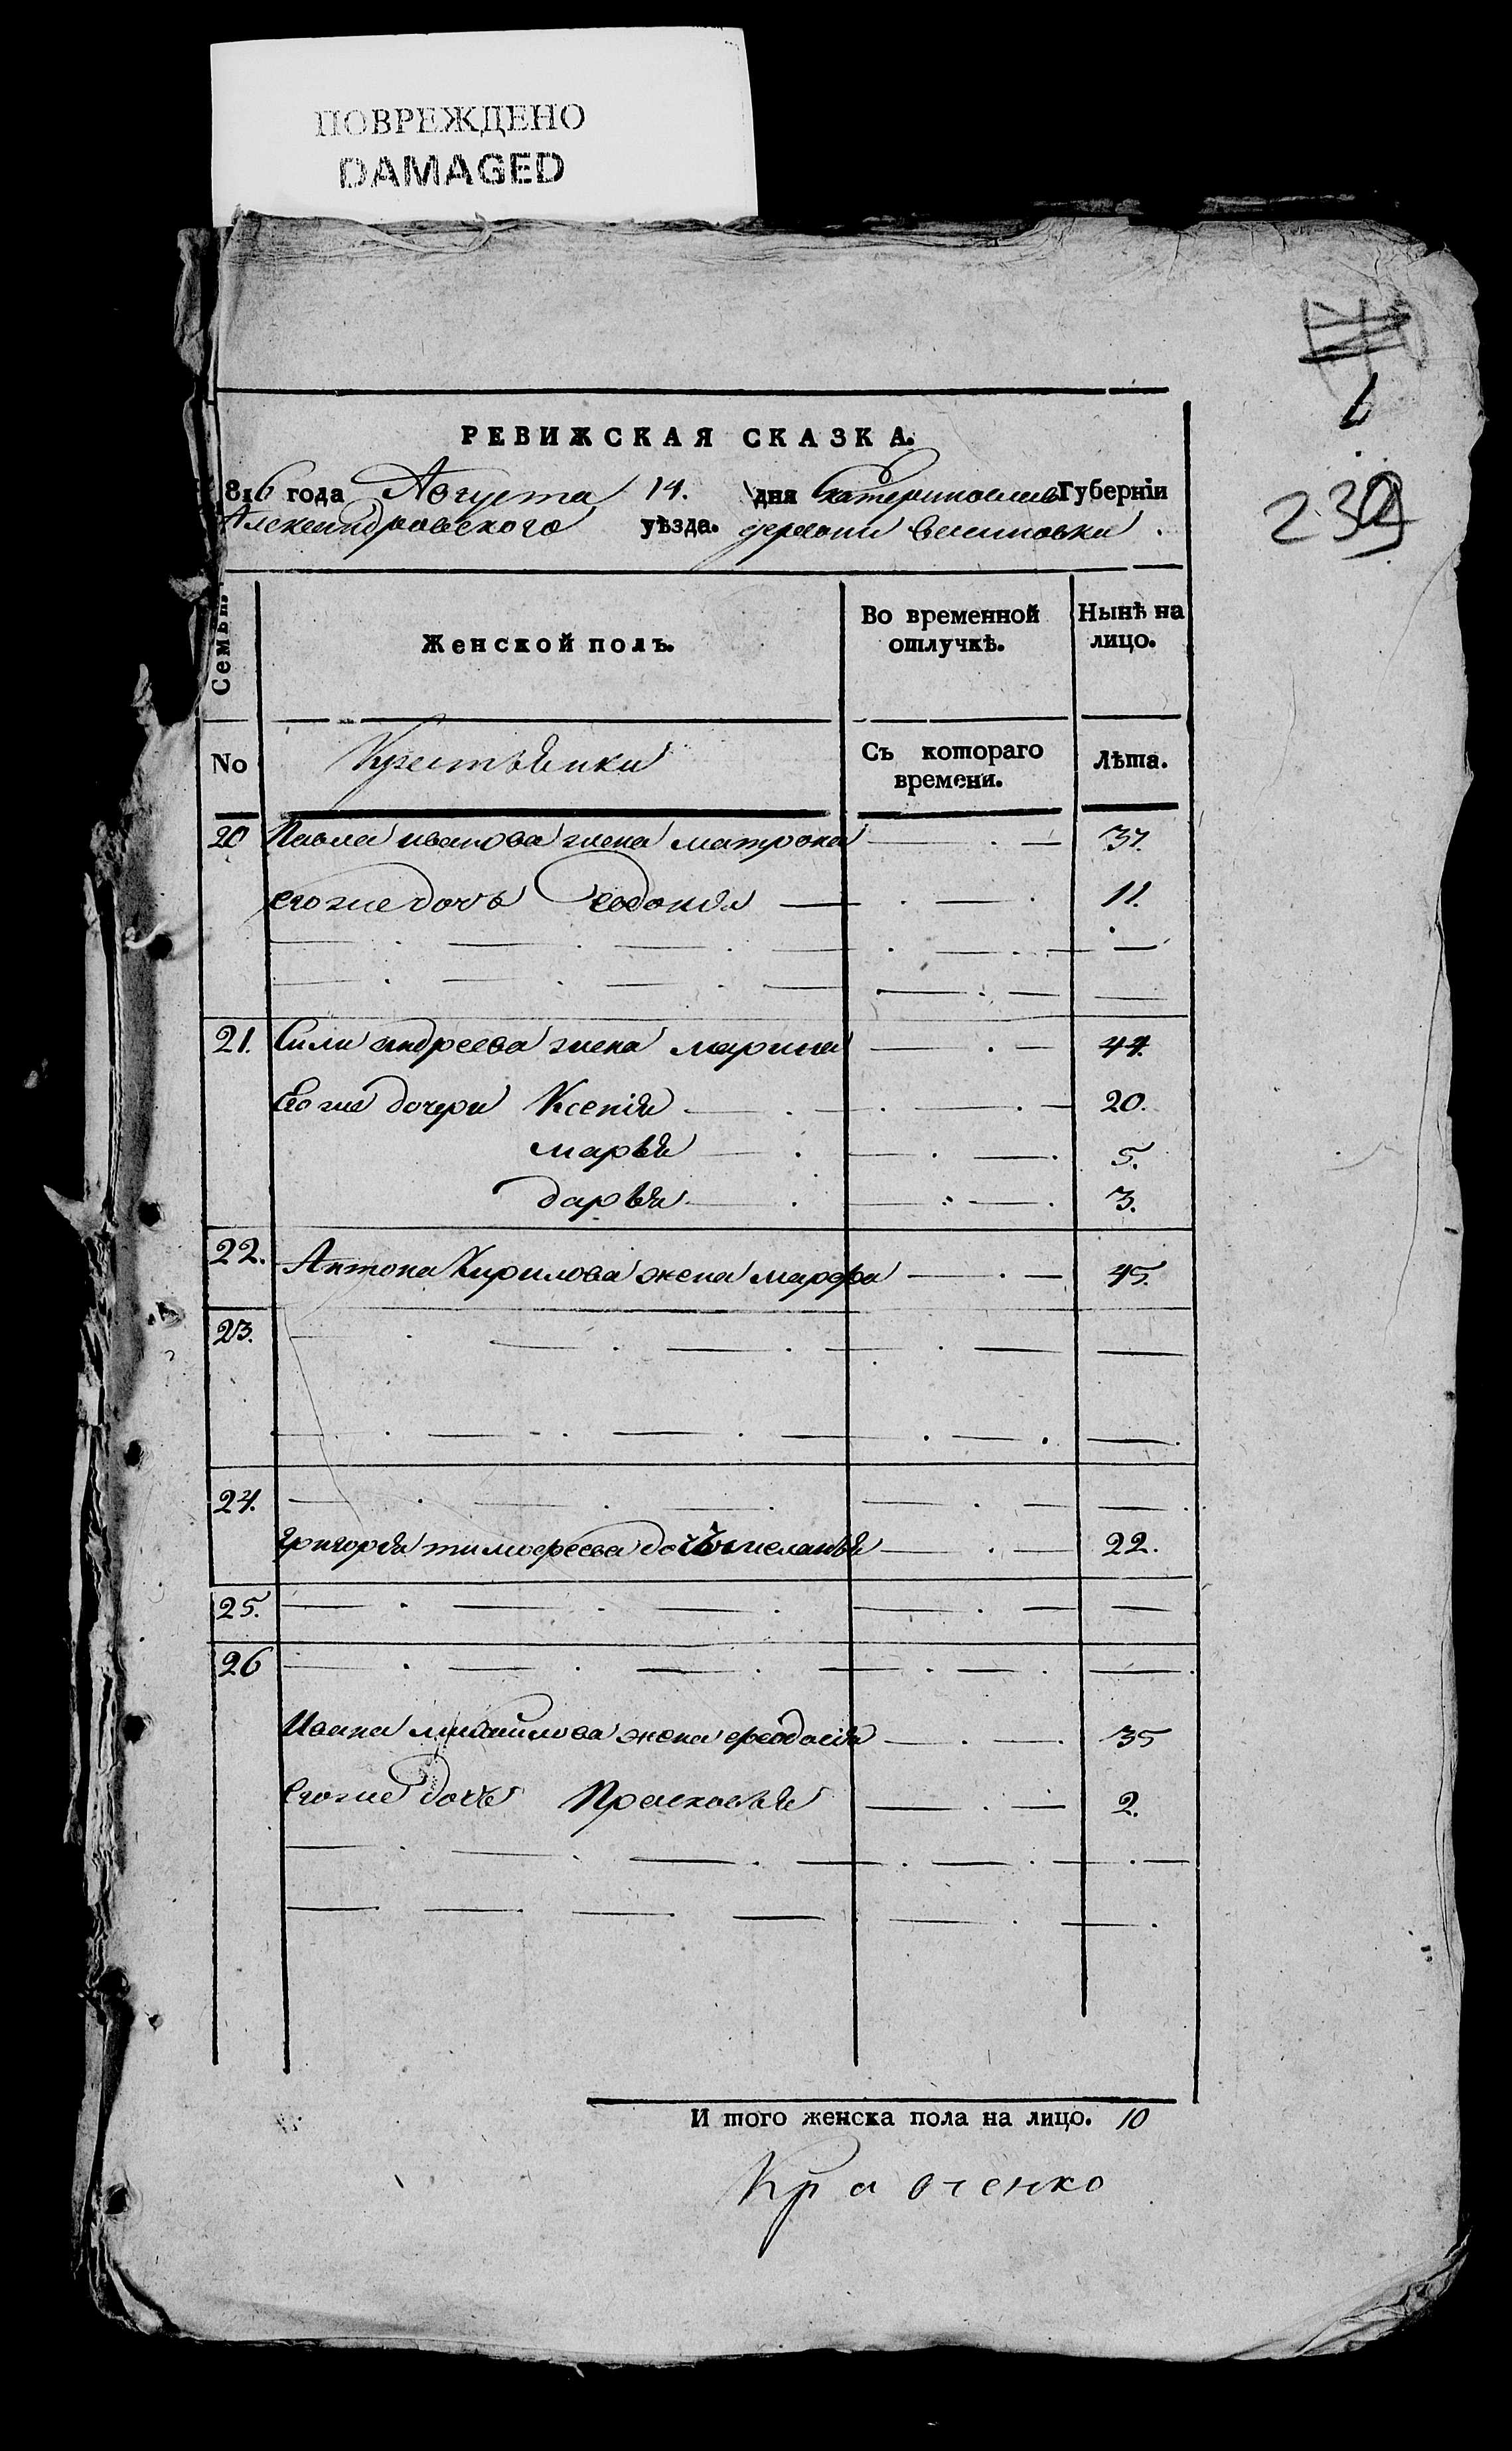 ПОВРЕЖДЕНО
DAMAGED
6
239
РЕВИЖСКАЯ СКАЗКА.
816 года Августа 14. дня Екатеринослав Губерніи
Александровского уѣзда. деревни
Семьи. Женской полъ. Во временной отлучкѣ. Нынѣ на лицо.
No Крестьянки Съ котораго времени. Лѣта.
20 Павла иванова жена матрона 37.
его же дочь Феодосія 11.
21. Сили андреева жена марина 44.
Его же дочери Ксенія 20.
марья 5.
дарья 3.
22. Антона Кирилова жена марфа 45.
23.
24.
григорія тимофеева дочь меланья 22.
25.
26
Ивана михайлова жена феодосія 35
его же дочь Прасковья 2.
И того женска пола на лицо. 10
Кравченко